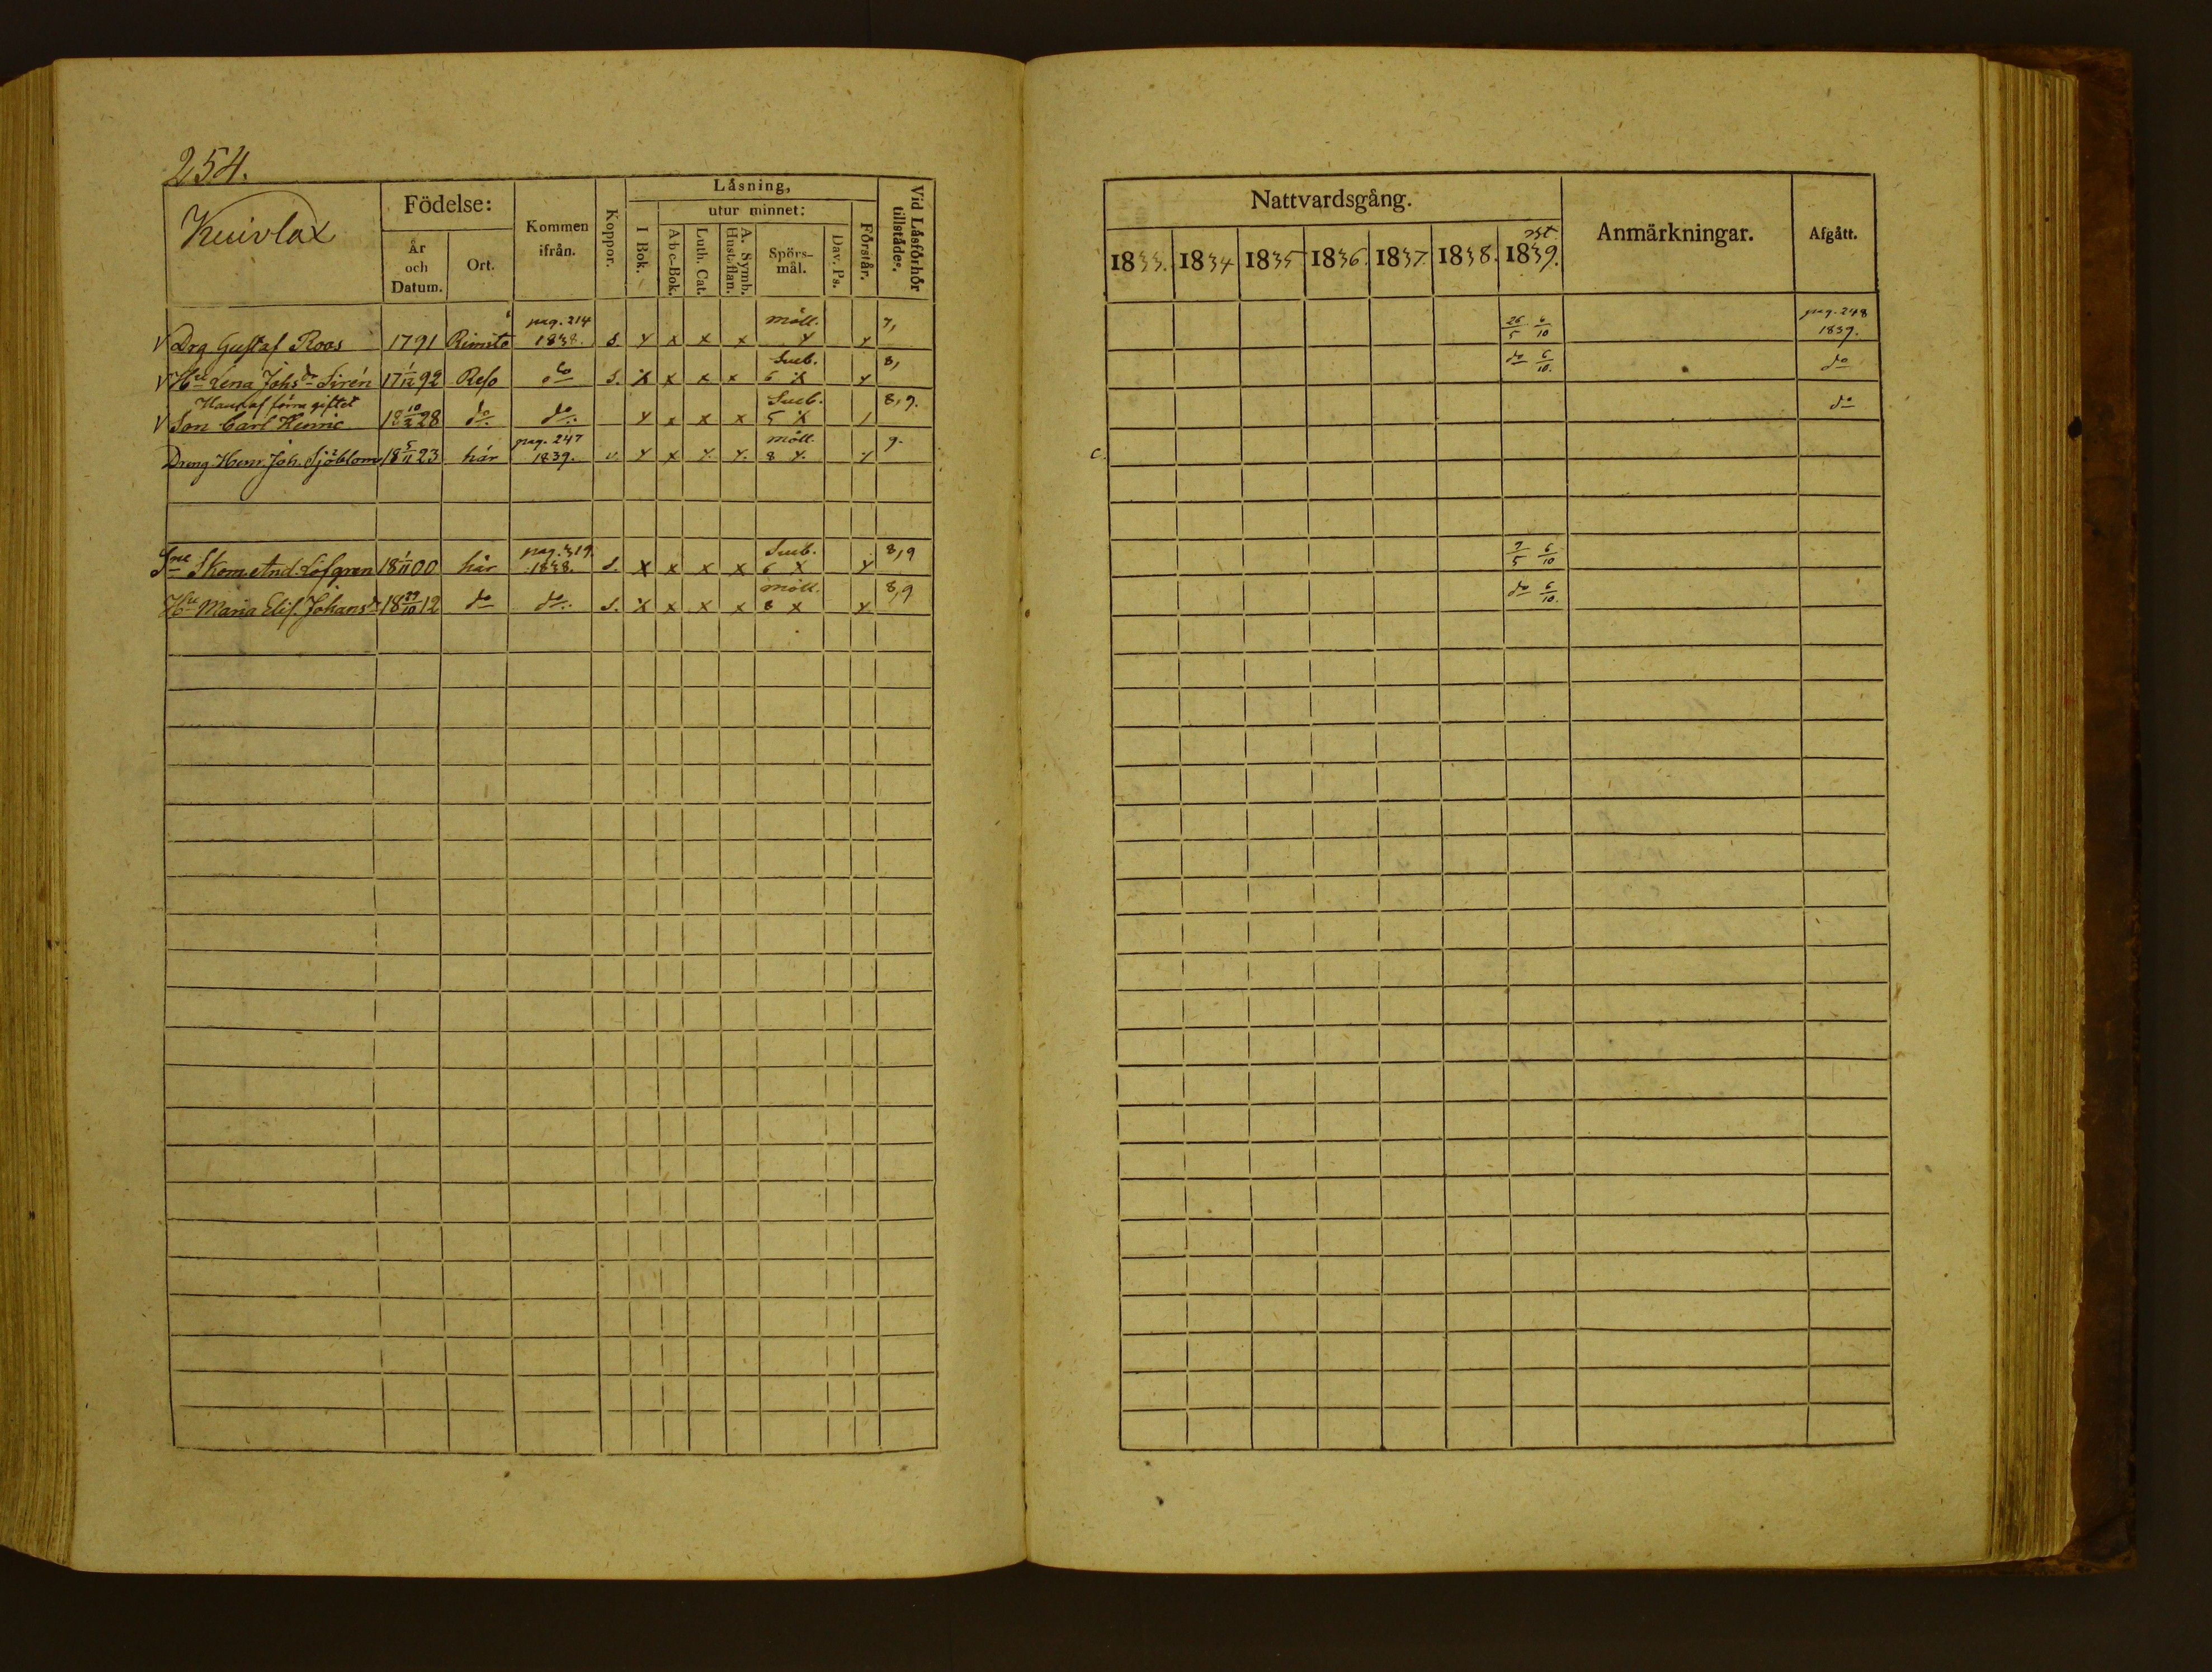 254.
Kuivlax
Födelse:
År
och
Datum.
Ort.
Kommen
ifrån.
Koppor.
Låsning,
I Bok.
utur minnet:
A-b-c-Bok.
Luth. Cat.
A. Symb.
Hust.flan.
Spörs-
mål.
Dav. Ps.
Förstår.
Vid Låsförhör
tillstådes.
Nattvardsgång.
1833. 1834 1835 1836. 1837. 1838. 1839.
Anmärkningar.
Afgått.
pag. 214 möll. 7, pag. 248
V Drg Gustaf Roos 1791 Rimito 1838. s. y x x x y y 26/5 6/10 1839.
Sueb. 8,
V Hu Lena Johs dr Sirén 17 1/12 92 Reso do s. x x x x 6 x y do 6/10. do
Hans af förra giftet Sueb. 8,9.
V Son Carl Henric 18 10/2 28 do do y x x x 5 x / do
pag. 247 möll. 9.
Dreng Henr. Joh. Sjöblom 18 5/11 23 här 1839. v. y x y. y. 8 y. y c.
pag. 319. Sueb. 8,9
Skom. And. Löfgren 18 1/11 00 här 1838. s. x x x x 6 x y 7/5 6/10
möll. 8,9
Hu Maria Elis. Johans dr 18 29/10 12 do do s. x x x x 8 x y do 6/10.